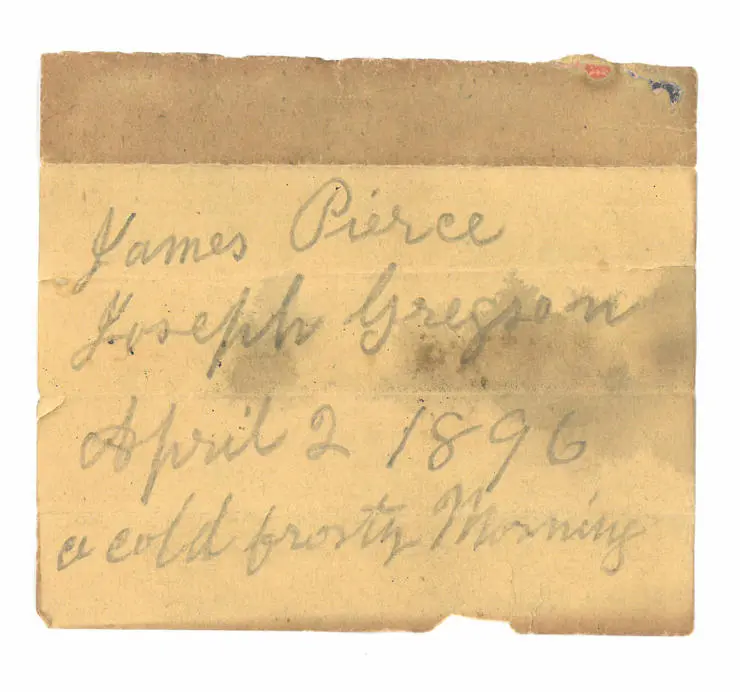 James Pierce
Joseph Gregson
April 2 1896
a cold frosty Morning